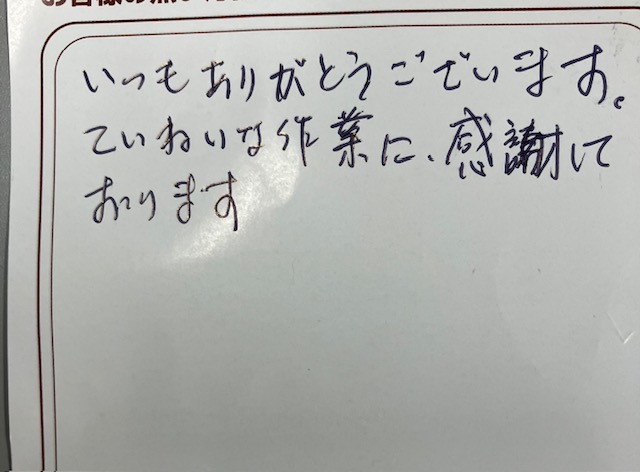 いつもありがとうございます。
ていねいな作業に、感謝して
おります